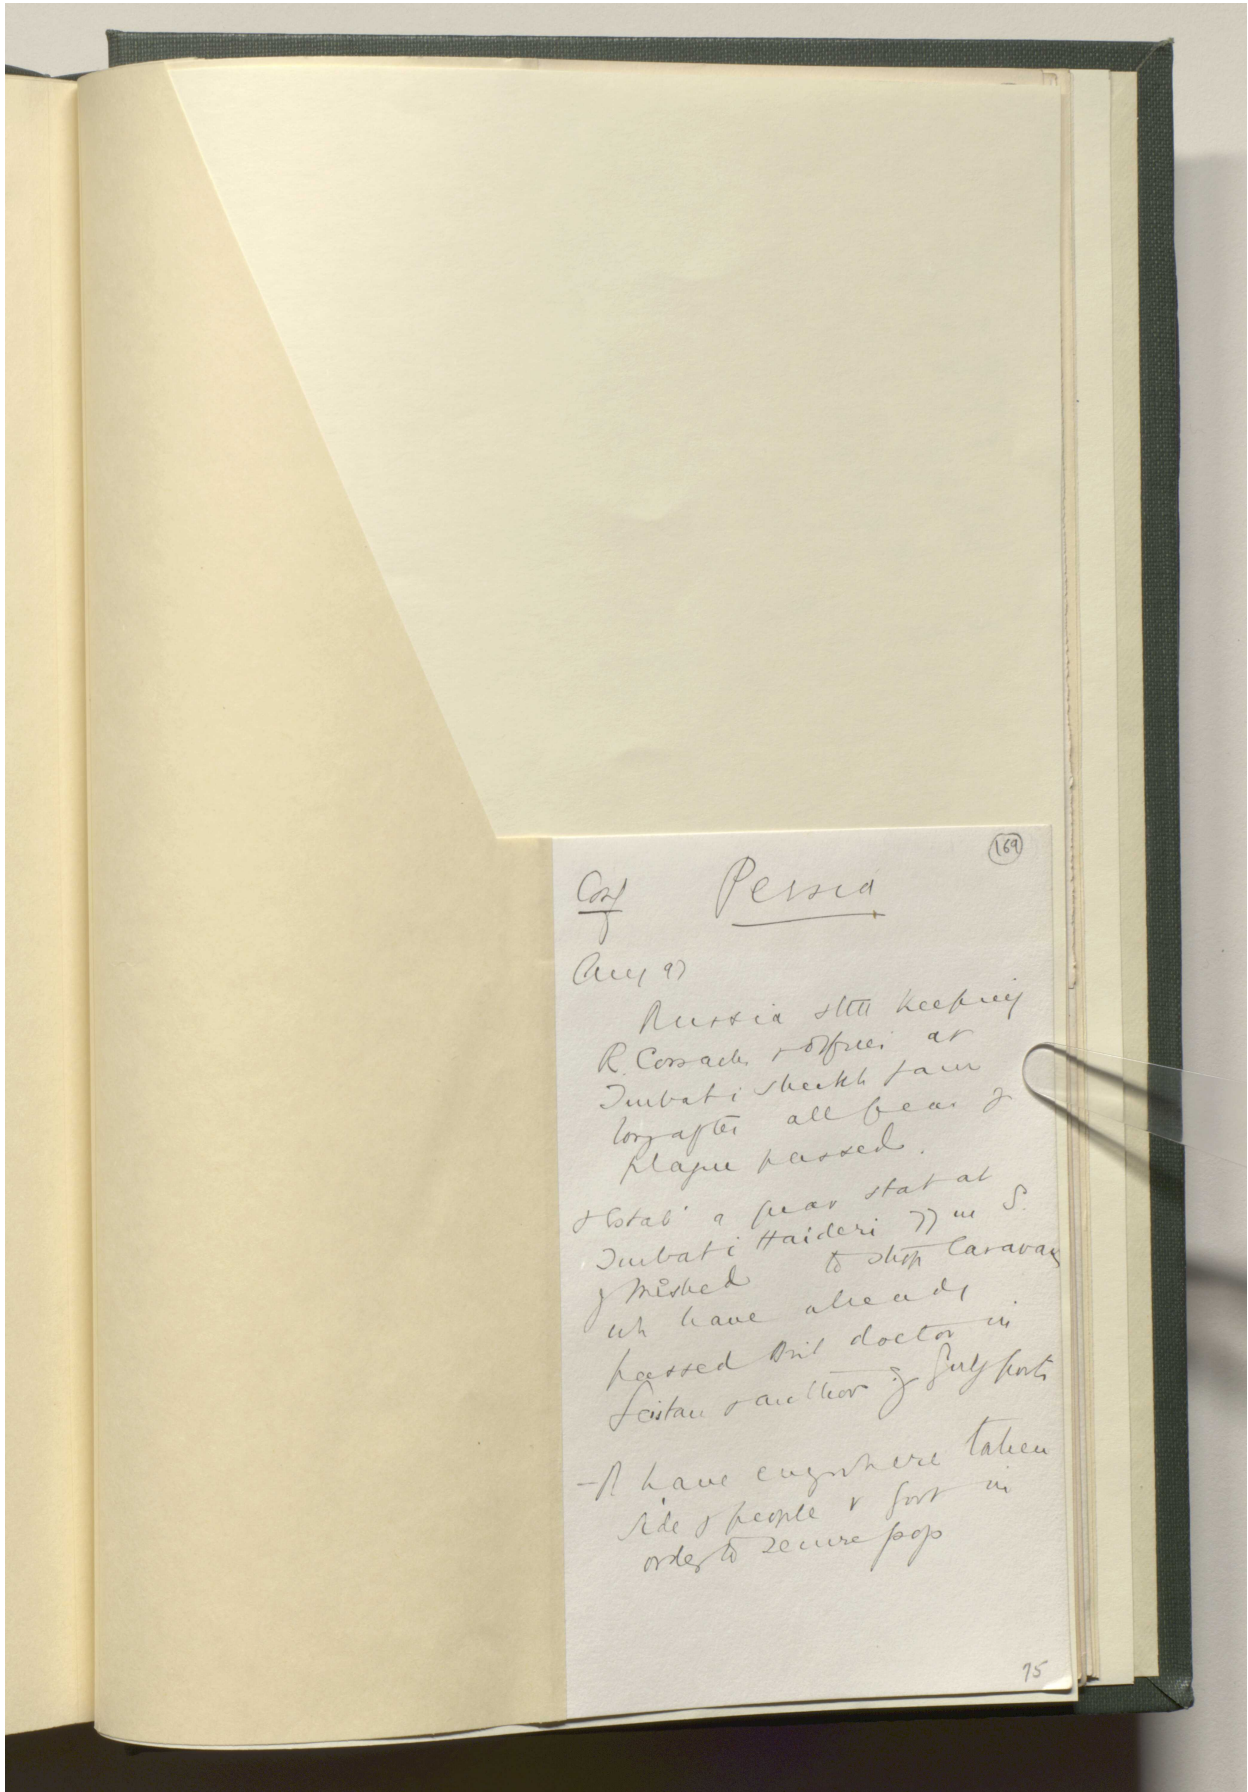 169
Conf Persia
Aug 97
Russia still keeping
R. Cossacks & officer at
Turbat i sheikh Jam
long after all fear of
plague passed.
& Estab a quar stat at
Turbat i Haideri 77 m S.
of Meshed to stop Caravans
wh have already
passed Brit doctor in
Seistan & author of Gulf ports
- R have everywhere taken
side of people v Govt in
order to secure pop
75